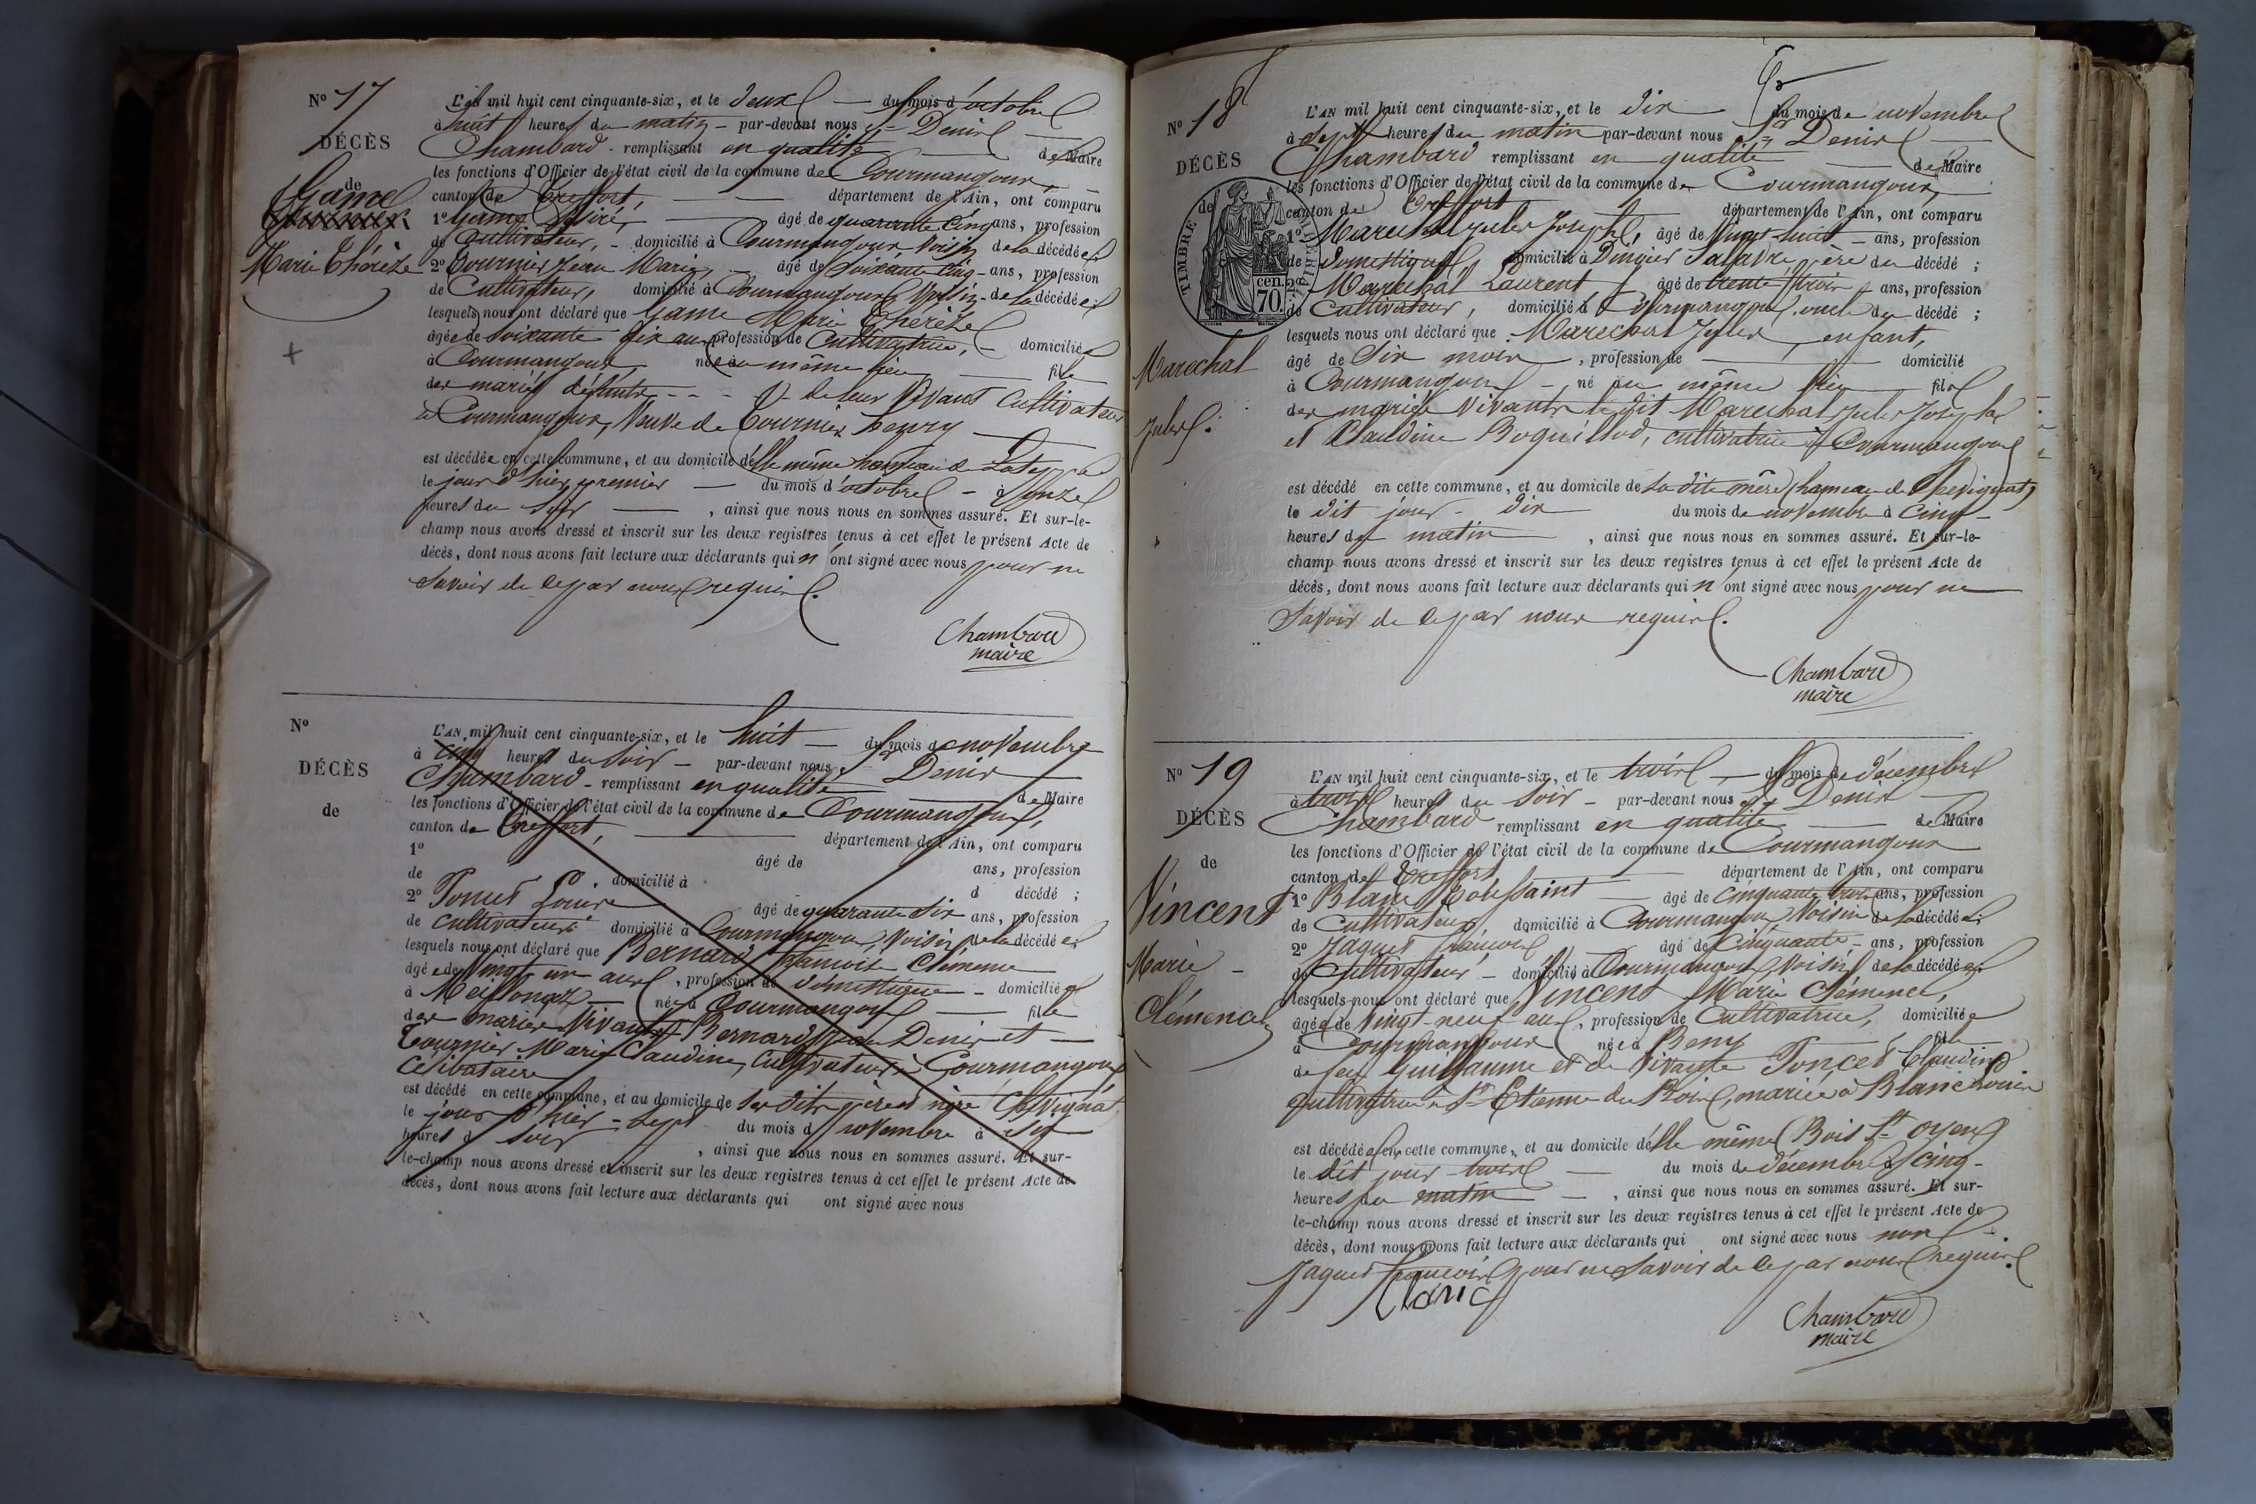 N° 17
DÉCÈS
de
Game
Marie Thérèze
L'AN mil huit cent cinquante-six, et le deux du mois d'octobre
à huit heures du matin par-devant nous Sr Denis
Chambard remplissant en qualité de Maire
les fonctions d'Officier de l'état civil de la commune de Courmangoux,
canton de Treffort, département de l'Ain, ont comparu
1° Game âgé de quarante cinq ans, profession
de Cultivateur, domicilié à Courmangoux voisin de la décédée
2° Tournier Jean Marie, âgé de soixante cinq ans, profession
de Cultivateur, domicilié à Courmangoux voisin de la décédée ;
lesquels nous ont déclaré que Game Marie Thérèze
âgée de soixante dix ans profession de Cultivatrice, domiciliée
à Courmangoux, née au même lieu fille
des mariés défunts de leur vivant cultivateurs
à Courmangoux, Veuve de Tournier henry
est décédée en cette commune, et au domicile d'elle même hameau de
le jour d'hier premier du mois d'octobre à onze
heures du soir , ainsi que nous nous en sommes assuré. Et sur-le-
champ nous avons dressé et inscrit sur les deux registres tenus à cet effet le présent Acte de
décès, dont nous avons fait lecture aux déclarants qui n'ont signé avec nous pour ne
savoir de ce par nous requis.
Chambard
maire
N°
DÉCÈS
de
L'AN mil huit cent cinquante-six, et le huit du mois de novembre
à cinq heures du soir par-devant nous Sr Denis
Chambard remplissant en qualité de Maire
les fonctions d'Officier de l'état civil de la commune de Courmangoux,
canton de Treffort, département de l'Ain, ont comparu
1° âgé de ans, profession
de domicilié à d décédé ;
2° Poncet Louis âgé de quarante six ans, profession
de cultivateur domicilié à Courmangoux, voisin de la décédée
lesquels nous ont déclaré que Bernard françoise Clémence
âgée de vingt un ans, profession de domestique domiciliée
à Meillonnaz née à Courmangoux fille
des mariés vivants Bernard Jean Denis et
Tournier Marie Claudine, Cultivateurs à Courmangoux
Célibataire
est décédé en cette commune, et au domicile de ses dits père et mère Chevignat,
le jour d'hier sept du mois d novembre à six
heures d soir , ainsi que nous nous en sommes assuré. Et sur-
le-champ nous avons dressé et inscrit sur les deux registres tenus à cet effet le présent Acte de
décès, dont nous avons fait lecture aux déclarants qui ont signé avec nous
N° 18
DÉCÈS
de
TIMBRE IMPÉRIAL
70 cen.
Marechal
Jules.
L'AN mil huit cent cinquante-six, et le dix du mois de novembre
à sept heures du matin par-devant nous Sr Denis
Chambard remplissant en qualité de Maire
les fonctions d'Officier de l'état civil de la commune de Courmangoux,
canton de Treffort département de l'Ain, ont comparu
1° Marechal Jules Joseph, âgé de vingt-huit ans, profession
de domestique, domicilié à père du décédé ;
2° Marechal Laurent âgé de trente trois ans, profession
de Cultivateur, domicilié à Courmangoux, oncle du décédé ;
lesquels nous ont déclaré que Marechal Jules, enfant,
âgé de six mois , profession de domicilié
à Courmangoux né au même lieu fils
des mariés vivants le dit Marechal Jules Joseph
et Claudine Boquillod, cultivatrice à Courmangoux
est décédé en cette commune, et au domicile de sa dite mère (hameau de Chevignat)
le dit jour dix du mois de novembre à cinq
heures du matin , ainsi que nous nous en sommes assuré. Et sur-le-
champ nous avons dressé et inscrit sur les deux registres tenus à cet effet le présent Acte de
décès, dont nous avons fait lecture aux déclarants qui n'ont signé avec nous pour ne
savoir de ce par nous requis.
Chambard
maire
N° 19
DÉCÈS
de
Vincent
Marie
Clémence
L'AN mil huit cent cinquante-six, et le trois du mois de décembre
à trois heures du soir par-devant nous Sr Denis
Chambard remplissant en qualité de Maire
les fonctions d'Officier de l'état civil de la commune de Courmangoux
canton de Treffort département de l'Ain, ont comparu
1° Blanc Toussaint âgé de cinquante trois ans, profession
de Cultivateur, domicilié à Courmangoux voisin de la décédée ;
2° Jaquet françois âgé de Cinquante ans, profession
de Cultivateur domicilié à Courmangoux voisin de la décédée
lesquels nous ont déclaré que Vincent Marie Clémence,
âgée de vingt-neuf ans, profession de Cultivatrice, domiciliée
à Courmangoux née à Beny fille
de feu Guillaume et de vivante Poncet Claudine
cultivatrice à St Etienne du Bois, mariée à Blanc Louis
est décédée en cette commune, et au domicile d'elle même (Bois St oyen)
le dit jour trois du mois de décembre à cinq
heures du matin , ainsi que nous nous en sommes assuré. Et sur-
le-champ nous avons dressé et inscrit sur les deux registres tenus à cet effet le présent Acte de
décès, dont nous avons fait lecture aux déclarants qui ont signé avec nous non
Jaquet françois pour ne savoir de ce par nous requis.
Blanc
Chambard
maire